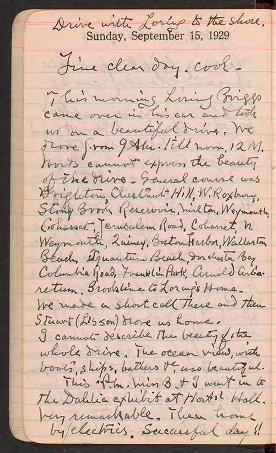 Drive with Loring to the shore.
Sunday, September 15, 1929
Fine clear day. cool.
This morning Loring Briggs
came over in his car and took
us on a beautiful drive. We
drove from 9 A.M. till noon, 12 M.
Words cannot express the beauty
of the drive. General course was
Brighton, Chestnut Hill, W. Roxbury,
Stony Brook Reservoir, Milton, Weymouth,
Cohasset, Jerusalem Road, Cohasset, N.
Weymouth, Quincy, Boston Harbor, Wollaston
Beach, Squantum Beach Dorchester Bay
Columbia Road, Franklin Park, Arnold Arbo-
retum, Brookline to Loring's Home.
We made a short call there and then
Stuart ( son) drove us home.
I cannot describe the beauty of the
whole drive. The ocean view, with
boats, ships, bathers etc. was beautiful.
This P.M. Miss B. & I went in to
the Dahlia exhibit at Hort. Hall.
Very remarkable. Then home
by electrics. Successful day!!